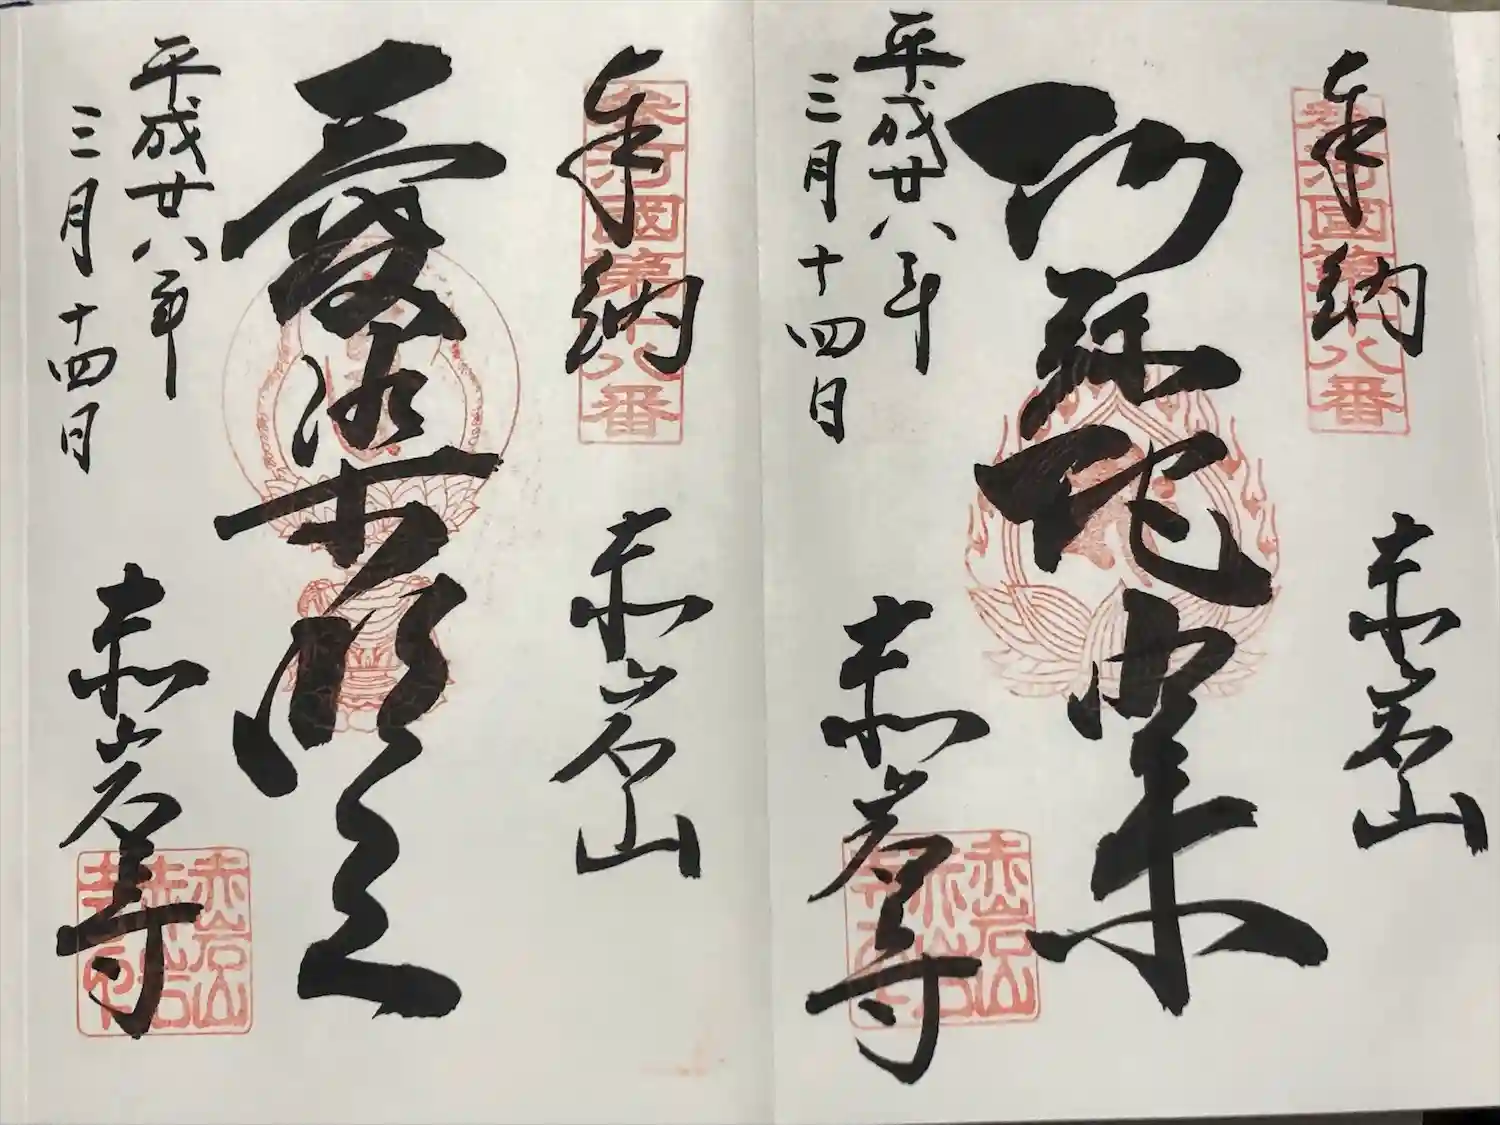 奉納
参河國第十八番
赤岩山
阿弥陀如来
平成廿八年
三月十四日
赤岩寺
赤岩山
赤岩寺
奉納
参河國第十八番
赤岩山
愛染明王
平成廿八年
三月十四日
赤岩寺
赤岩山
赤岩寺